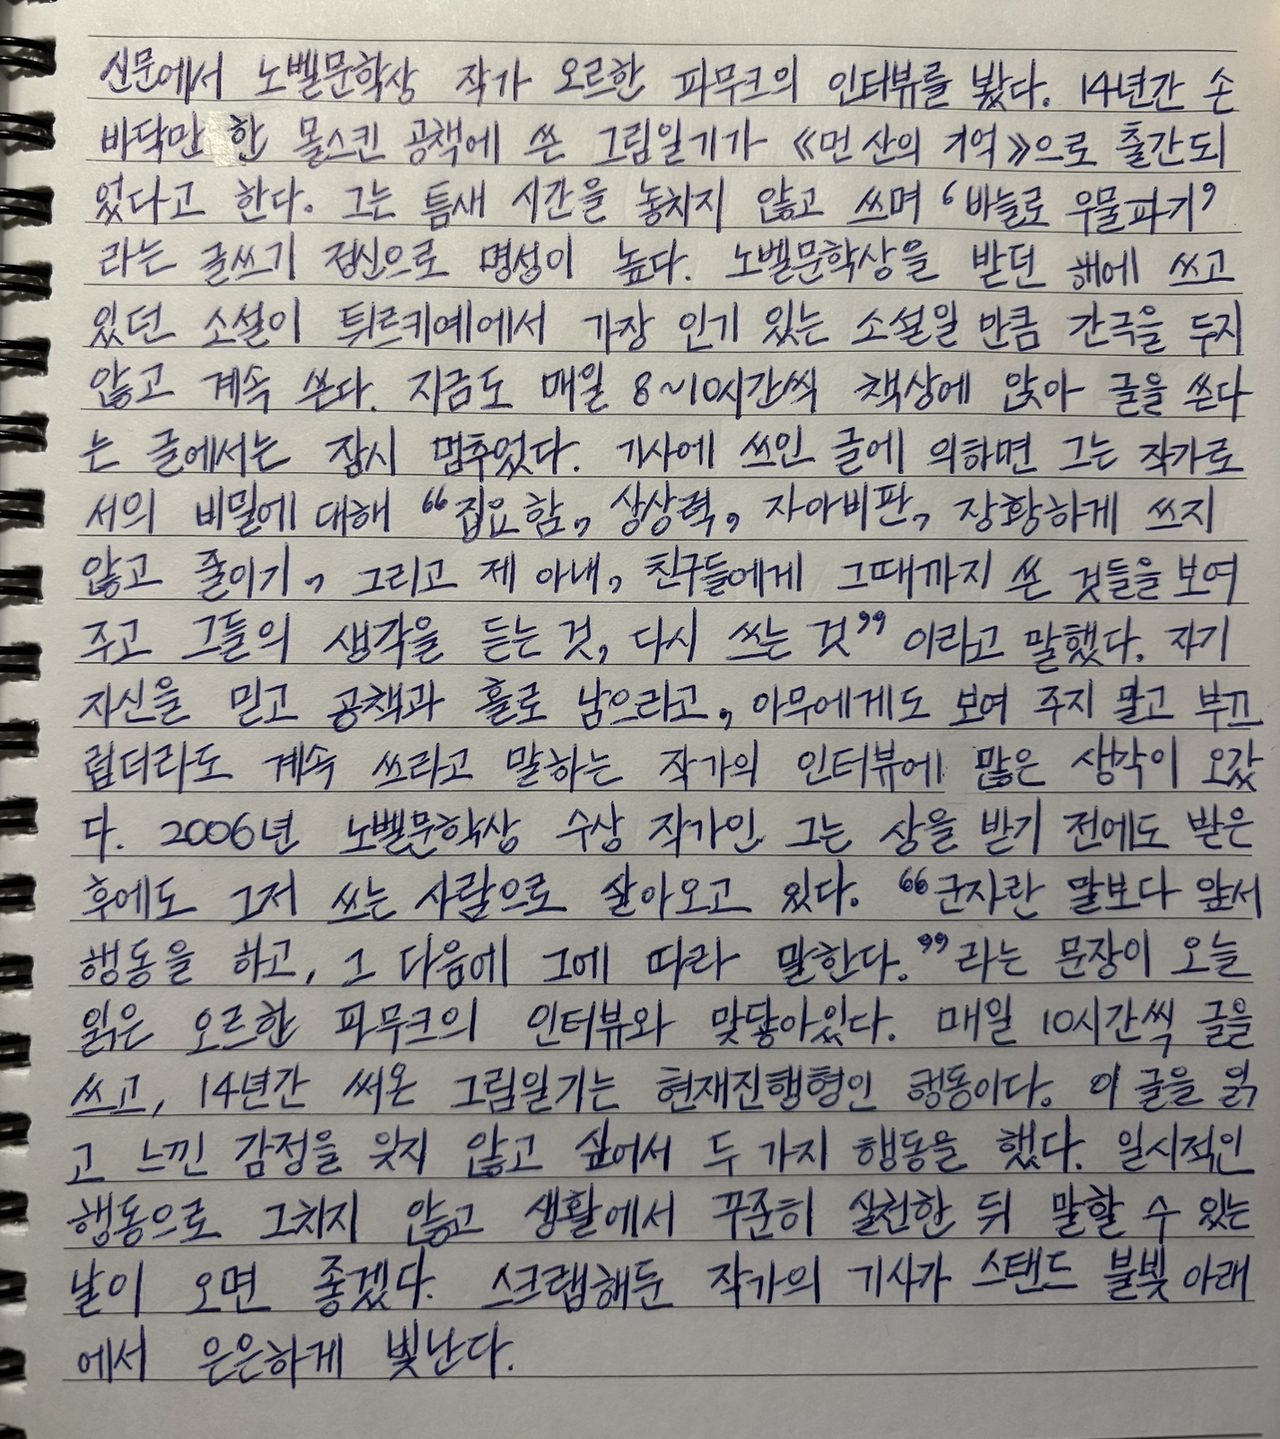 신문에서 노벨문학상 작가 오르한 파무크의 인터뷰를 봤다. 14년간 손
바닥만 한 몰스킨 공책에 쓴 그림일기가 《먼 산의 기억》으로 출간되
었다고 한다. 그는 틈새 시간을 놓치지 않고 쓰며 ‘바늘로 우물파기’
라는 글쓰기 정신으로 명성이 높다. 노벨문학상을 받던 해에 쓰고
있던 소설이 튀르키예에서 가장 인기 있는 소설일 만큼 간극을 두지
않고 계속 쓴다. 지금도 매일 8~10시간씩 책상에 앉아 글을 쓴다
는 글에서는 잠시 멈추었다. 기사에 쓰인 글에 의하면 그는 작가로
서의 비밀에 대해 “집요함, 상상력, 자아비판, 장황하게 쓰지
않고 줄이기, 그리고 제 아내, 친구들에게 그때까지 쓴 것들을 보여
주고 그들의 생각을 듣는 것, 다시 쓰는 것” 이라고 말했다. 자기
자신을 믿고 공책과 홀로 남으라고, 아무에게도 보여 주지 말고 부끄
럽더라도 계속 쓰라고 말하는 작가의 인터뷰에 많은 생각이 오갔
다. 2006년 노벨문학상 수상 작가인 그는 상을 받기 전에도 받은
후에도 그저 쓰는 사람으로 살아오고 있다. “군자란 말보다 앞서
행동을 하고, 그 다음에 그에 따라 말한다.”라는 문장이 오늘
읽은 오르한 파무크의 인터뷰와 맞닿아있다. 매일 10시간씩 글을
쓰고, 14년간 써온 그림일기는 현재진행형인 행동이다. 이 글을 읽
고 느낀 감정을 잊지 않고 싶어서 두 가지 행동을 했다. 일시적인
행동으로 그치지 않고 생활에서 꾸준히 실천한 뒤 말할 수 있는
날이 오면 좋겠다. 스크랩해둔 작가의 기사가 스탠드 불빛 아래
에서 은은하게 빛난다.